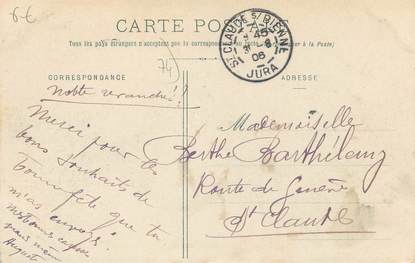 6-€
CARTE POSTALE
Tous les pays étrangers n'acceptent pas la correspondance au
à la Poste)
74
ST CLAUDE S/ BIENNE
06
JURA
CORRESPONDANCE
ADRESSE
Merci pour les
bons souhaits de
bonne fête que tu
m'as envoyé.
Auguste
Mademoiselle
Berthe Barthélemy
Route de Genève
St Claude